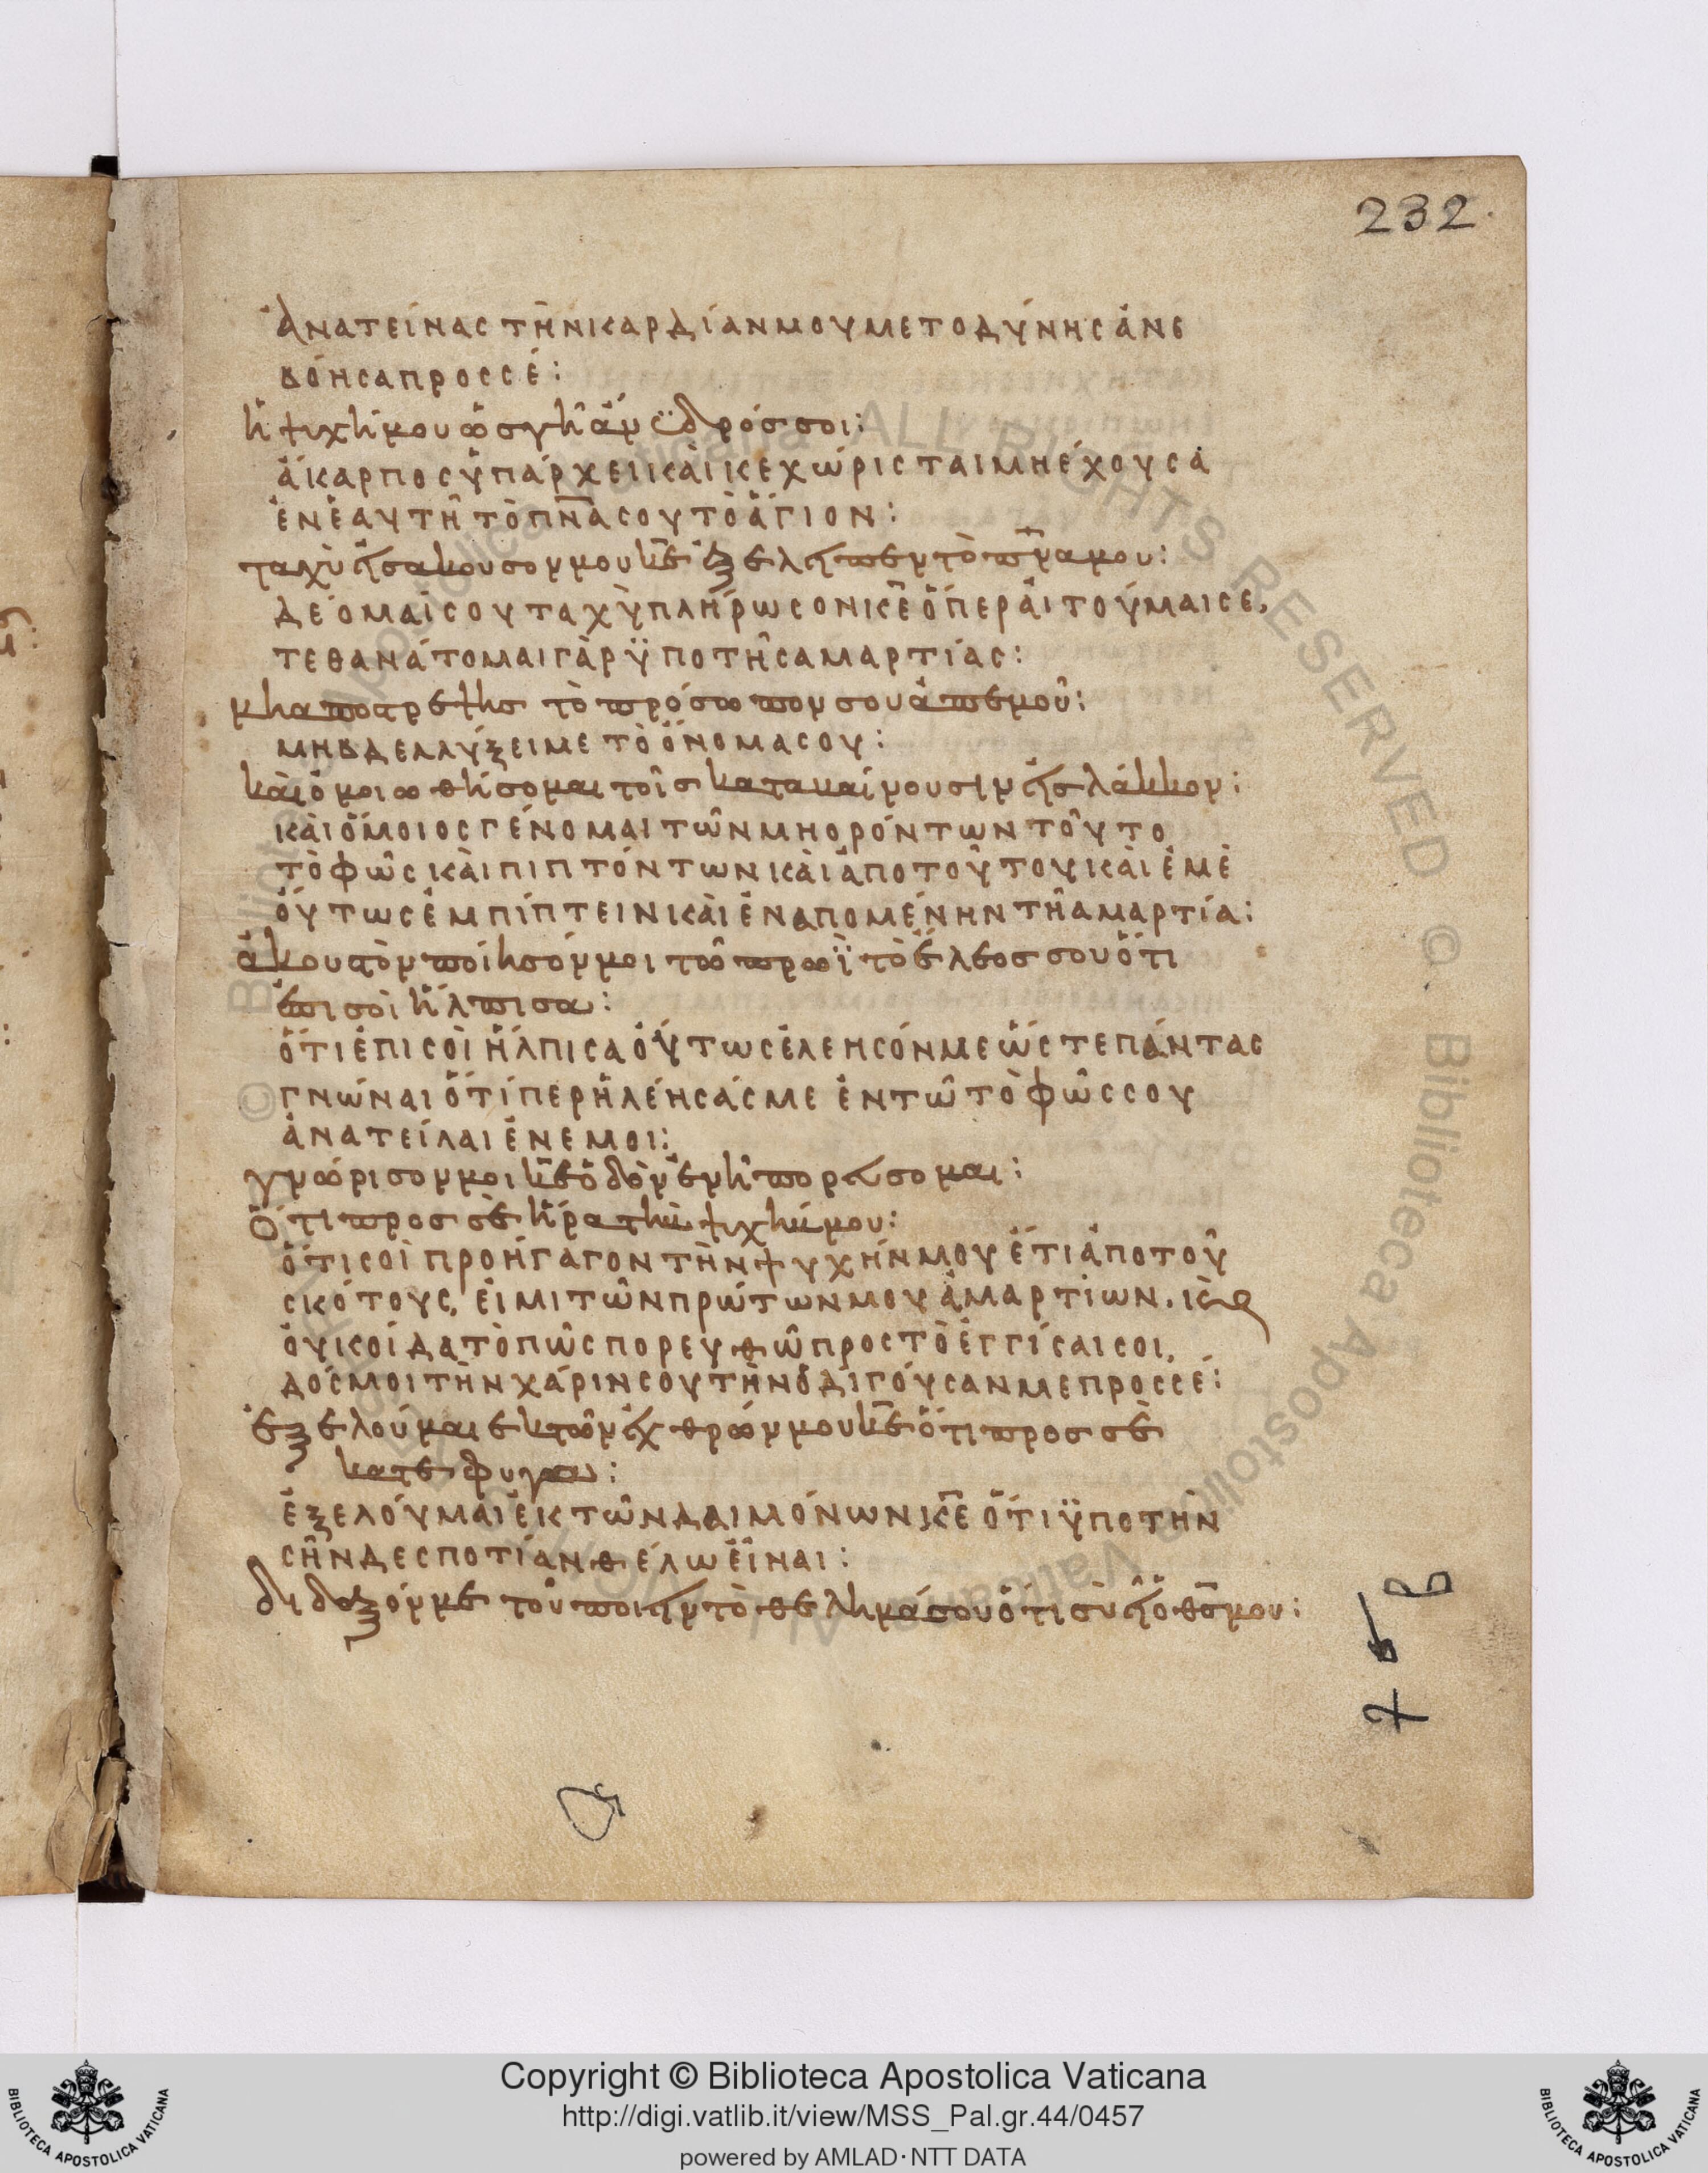 232.
Ἀνατείνας τὴν καρδίαν μου μετ οδύνης ἀνε
βόησα προς σέ:
ἡ ψυχή μου ὡς γῆ ἄν ϋδρός σοι:
ἄκαρπος ὑπάρχει καὶ κεχώρισται μη έχουσα
ἐν ἑαυτῆ τὸ πνα σου τὸ ἅγιον:
ταχὺ εἰσακουσον μου κε ἐξελειπεν τὸ πνα μου:
δέομαί σου ταχὺ πλήρωσον κε ὅπερ αἰτούμαι σε,
τεθανάτομαι γὰρ ϋπο τῆς αμαρτίας:
μη αποστρεψης τὸ πρόσωπον σου ἀπ εμοῦ:
μη βδελλύξει με τὸ ὄνομα σου:
καὶ ὁμοιωθήσομαι τοῖς καταβαίνουσιν εἰς λάκκον:
καὶ ὅμοιος γένομαι τῶν μη ορόντων τοῦτο
τὸ φῶς καὶ πιπτόντων καὶ ἀπο τούτου καὶ ἐμὲ
ὁύτως ἐμπίπτειν καὶ ἐναπομένην τῆ αμαρτία:
ἀκουστὸν ποίησόν μοι τῶ πρωϊ τὸ ἔλεος σου ὅτι
ἐπι σοὶ ἤλπισα:
ὅτι ἐπι σοὶ ἤλπισα ὁύτως ἐλεησόν με ὥστε πάντας
γνώναι ὅτίπερ ἠλέησάς με ἐν τῶ τὸ φῶς σου
ἀνατείλαι ἐν εμοι:
γνώρισον μοι κε ὁδὸν ἐν ἧ πορεύσομαι:
Ὅτι προς σὲ ἦρα τὴν ψυχήν μου:
ὅτι σοὶ προήγαγον τὴν ψυχήν μου ἔτι ἀπο τοῦ
σκότους, εἰμι τῶν πρώτων μου ἁμαρτίων. καὶ
ὀυκ οίδα τὸ πῶς πορευθῶ προς τὸ ἐγγίσαι σοι,
δός μοι τὴν χάριν σου τὴν οδιγόυσαν με προς σέ:
ἐξελού μαι εκ τῶν ἐχθρών μου κε ὅτι προς σὲ
κατεφυγον:
ἐξελόυ μαι ἐκ τῶν δαιμόνων κε ὅτι ϋπο τὴν
σὴν δεσποτίαν θέλω εἶναι:
διδαξόν με τοῦ ποιειν τὸ θελημά σου ὅτι σὺ εἶ ὁ θς μου:
Copyright © Biblioteca Apostolica Vaticana
http://digi.vatlib.it/view/MSS_Pal.gr.44/0457
powered by AMLAD·NTT DATA
BIBLIOTECA APOSTOLICA VATICANA
BIBLIOTECA APOSTOLICA VATICANA